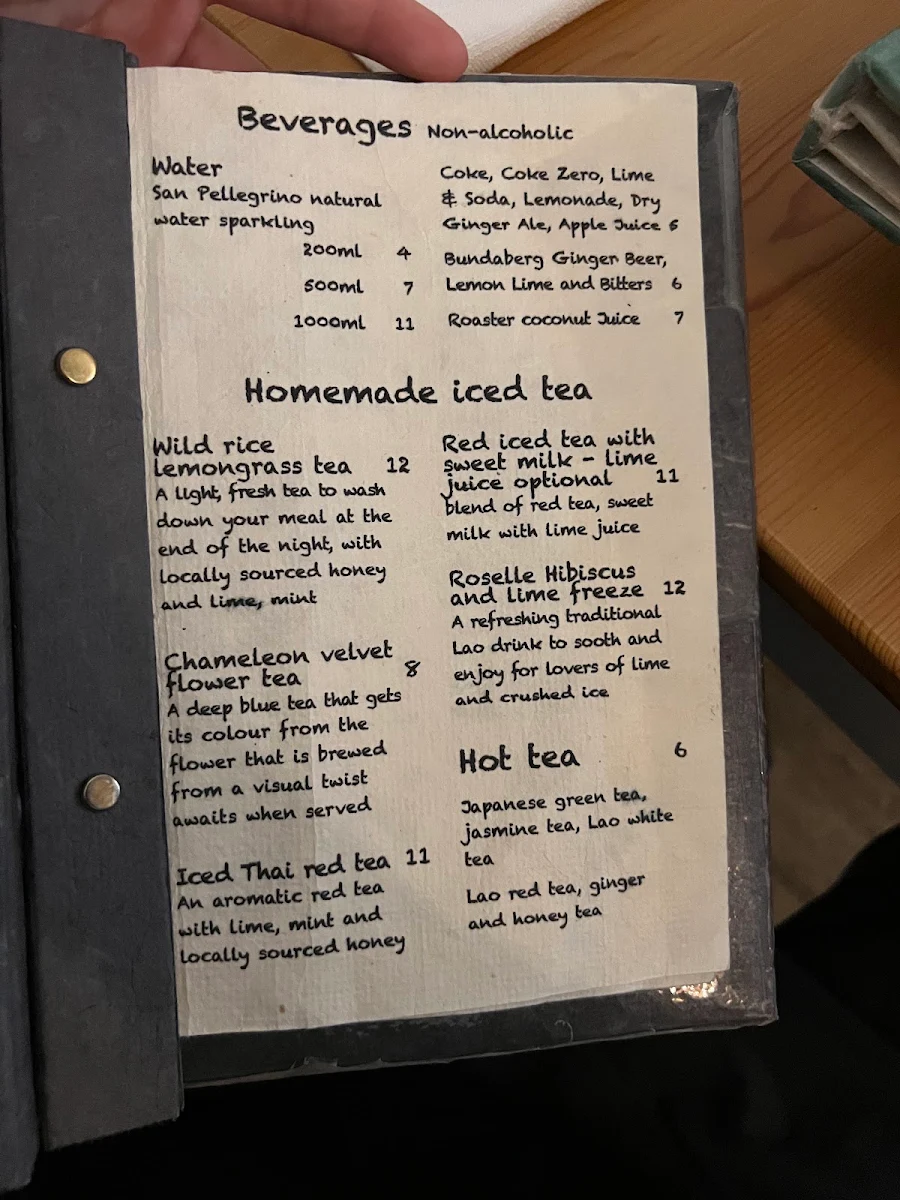 Beverages Non-alcoholic
Water
San Pellegrino natural
water sparkling
200ml 4
500ml 7
1000ml 11
Coke, Coke Zero, Lime
& Soda, Lemonade, Dry
Ginger Ale, Apple Juice 5
Bundaberg Ginger Beer,
Lemon Lime and Bitters 6
Roaster coconut Juice 7
Homemade iced tea
Wild rice
lemongrass tea 12
A light, fresh tea to wash
down your meal at the
end of the night, with
locally sourced honey
and lime, mint
Chameleon velvet
flower tea 8
A deep blue tea that gets
its colour from the
flower that is brewed
from a visual twist
awaits when served
Iced Thai red tea 11
An aromatic red tea
with lime, mint and
locally sourced honey
Red iced tea with
sweet milk - lime
juice optional 11
blend of red tea, sweet
milk with lime juice
Roselle Hibiscus
and lime freeze 12
A refreshing traditional
Lao drink to sooth and
enjoy for lovers of lime
and crushed ice
Hot tea 6
Japanese green tea,
jasmine tea, Lao white
tea
Lao red tea, ginger
and honey tea